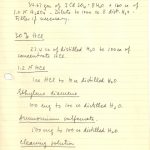 34.67 gm of 3 Cd SO₄ · 8 H₂O + 100 cc of
1.0 N H₂SO₄. Dilute to 1000 cc c dist. H₂O.
Filter if necessary.
20% HCl
cc of distilled H₂O to 100 cc of
concentrate HCl
1.2 N HCl
100 HCl to 10 cc distilled H₂O.
Ethylene diamine
100 mg to 100 cc distilled H₂O.
Ammonium sulfamate
500 mg to 100 cc distilled H₂O.
Cleaning solution